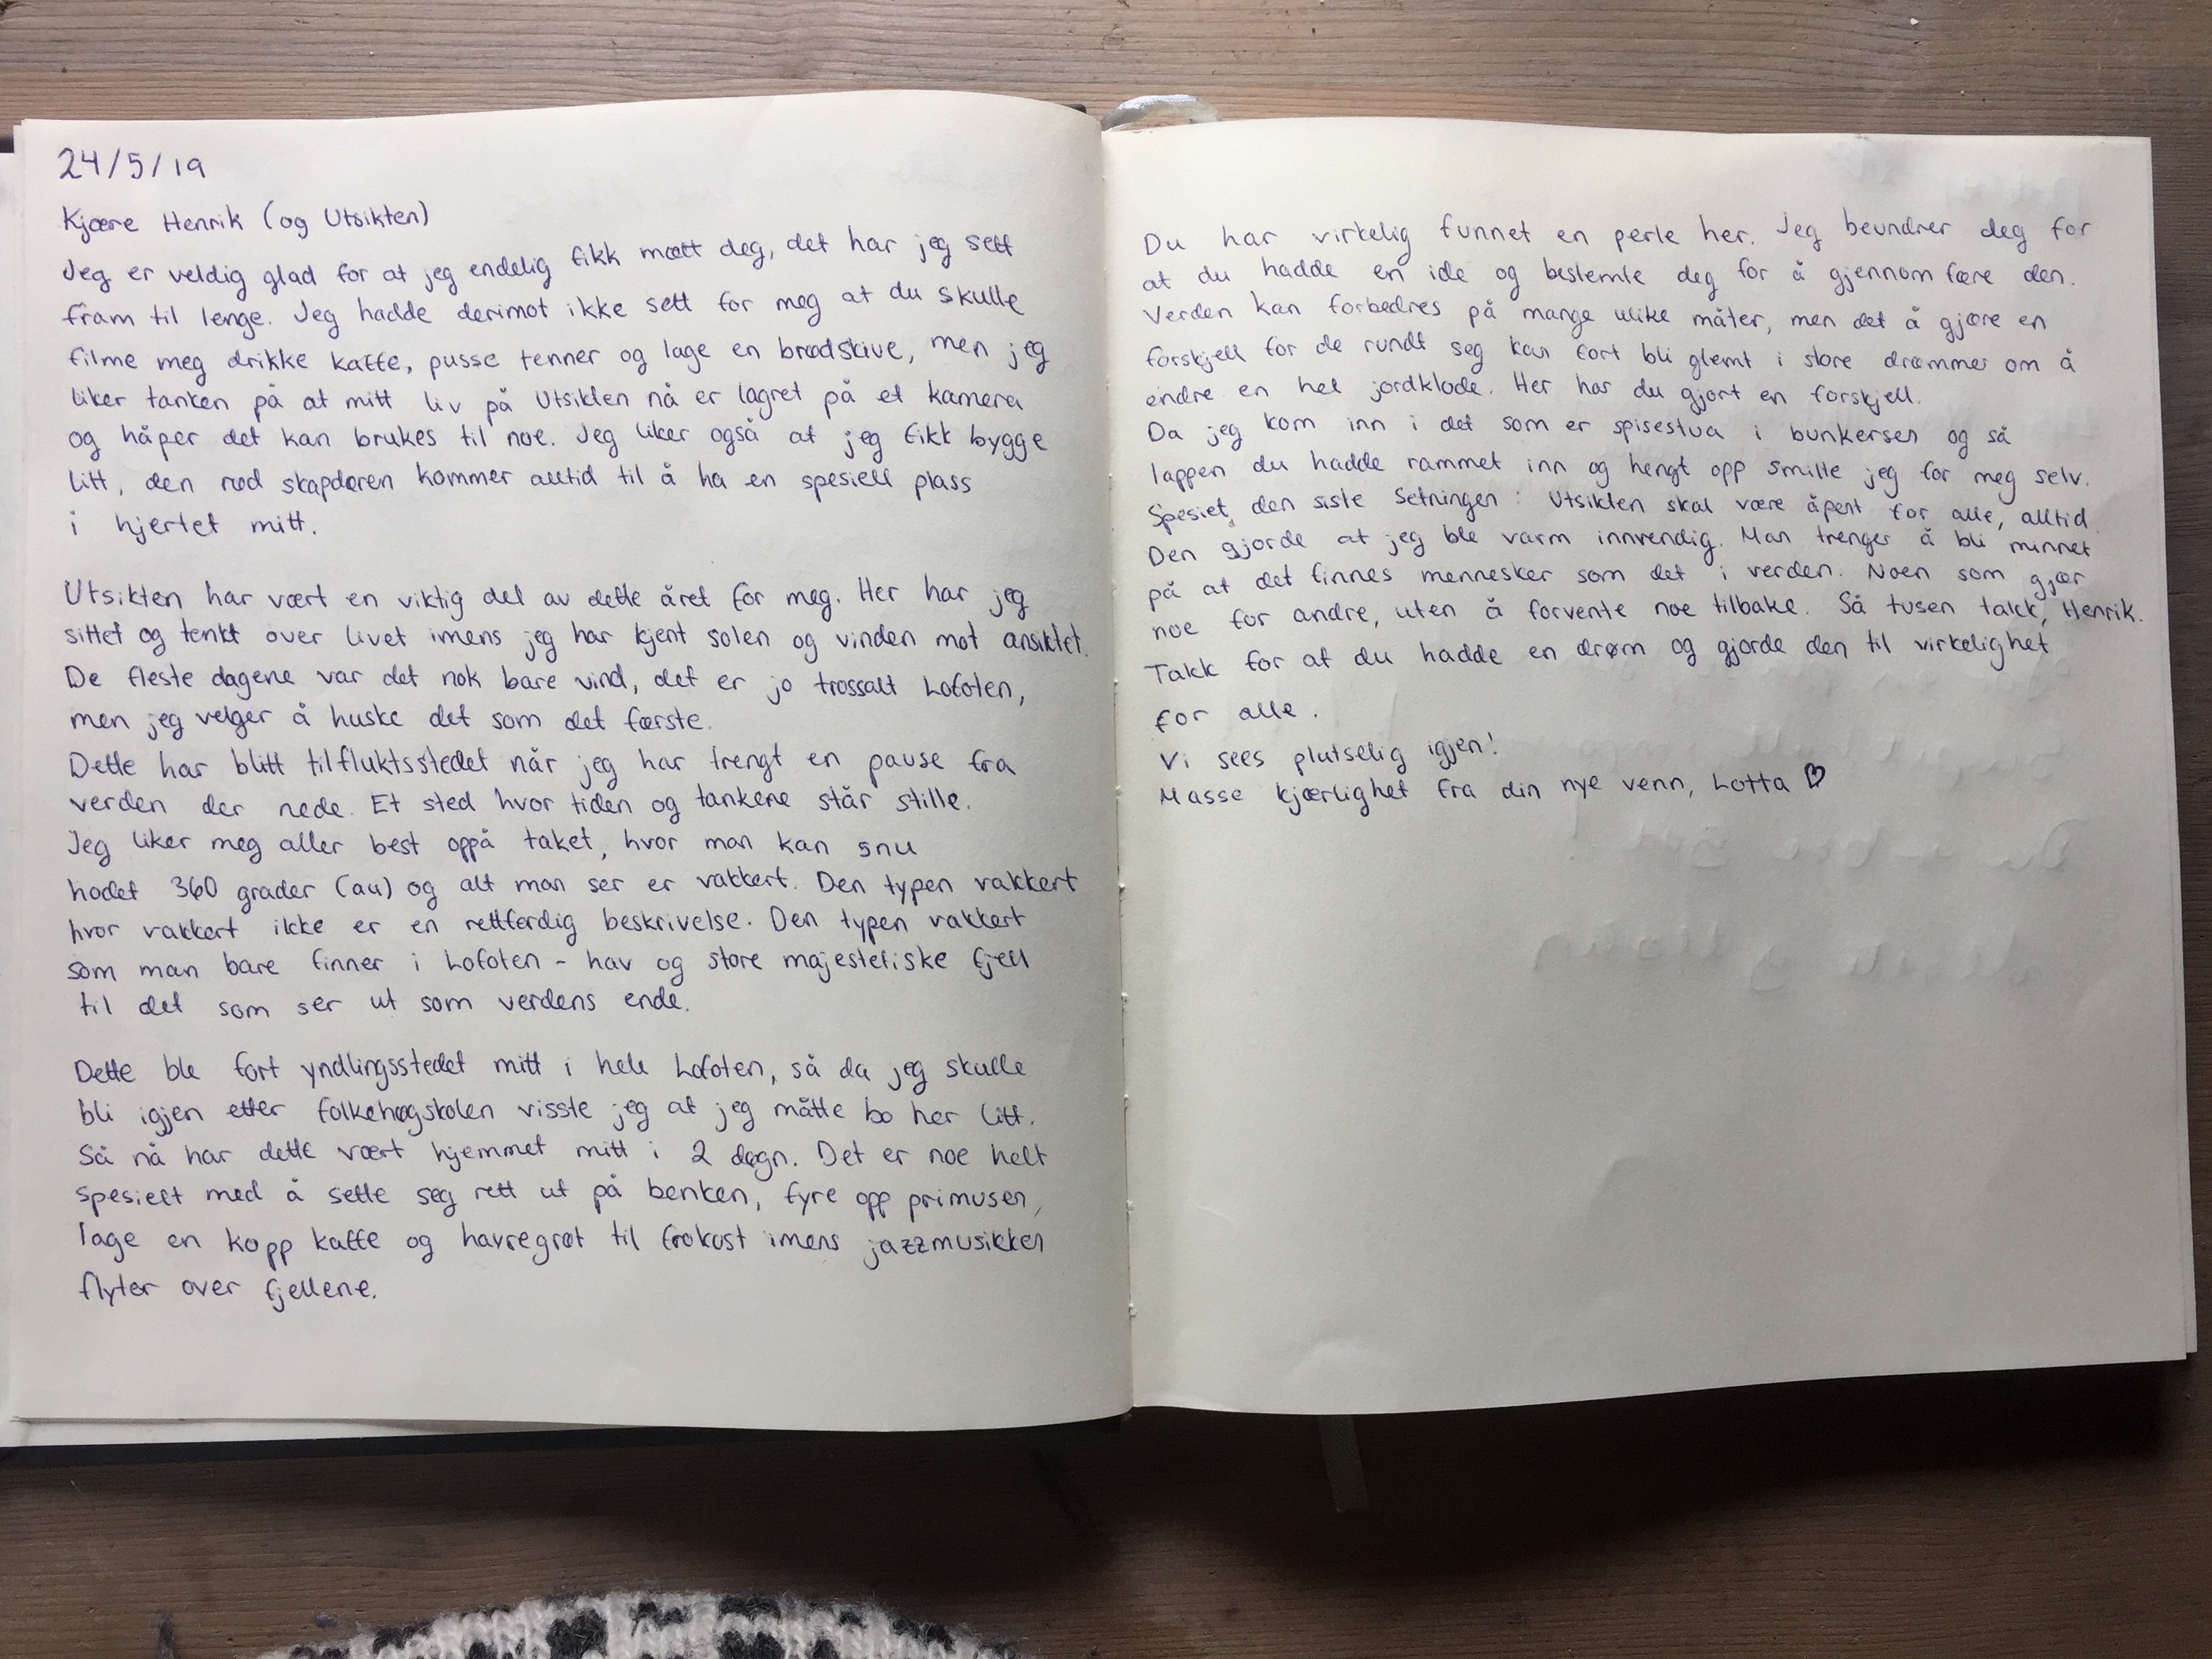 24/5/19
Kjære Henrik (og Utsikten)
Jeg er veldig glad for at jeg endelig fikk møtt deg, det har jeg sett
fram til lenge. Jeg hadde derimot ikke sett for meg at du skulle
filme meg drikke kaffe, pusse tenner og lage en brødskive, men jeg
liker tanken på at mitt liv på Utsikten nå er lagret på et kamera
og håper det kan brukes til noe. Jeg liker også at jeg fikk bygge
litt, den rød skapdøren kommer alltid til å ha en spesiell plass
i hjertet mitt.
Utsikten har vært en viktig del av dette året for meg. Her har jeg
sittet og tenkt over livet imens jeg har kjent solen og vinden mot ansiktet.
De fleste dagene var det nok bare vind, det er jo trossalt Lofoten,
men jeg velger å huske det som det første.
Dette har blitt tilfluktsstedet når jeg har trengt en pause fra
verden der nede. Et sted hvor tiden og tankene står stille.
Jeg liker meg aller best oppå taket, hvor man kan snu
hodet 360 grader (au) og alt man ser er vakkert. Den typen vakkert
hvor vakkert ikke er en rettferdig beskrivelse. Den typen vakkert
som man bare finner i Lofoten - hav og store majestetiske fjell
til det som ser ut som verdens ende.
Dette ble fort yndlingsstedet mitt i hele Lofoten, så da jeg skulle
bli igjen etter folkehøgskolen visste jeg at jeg måtte bo her litt.
Så nå har dette vært hjemmet mitt i 2 døgn. Det er noe helt
spesielt med å sette seg rett ut på benken, fyre opp primusen,
lage en kopp kaffe og havregrøt til frokost imens jazzmusikken
flyter over fjellene.
Du har virkelig funnet en perle her. Jeg beundrer deg for
at du hadde en ide og bestemte deg for å gjennomføre den.
Verden kan forbedres på mange ulike måter, men det å gjøre en
forskjell for de rundt seg kan fort bli glemt i store drømmer om å
endre en hel jordklode. Her har du gjort en forskjell.
Da jeg kom inn i det som er spisestua i bunkersen og så
lappen du hadde rammet inn og hengt opp smilte jeg for meg selv.
Spesielt den siste setningen: Utsikten skal være åpent for alle, alltid.
Den gjorde at jeg ble varm innvendig. Man trenger å bli minnet
på at det finnes mennesker som det i verden. Noen som gjør
noe for andre, uten å forvente noe tilbake. Så tusen takk, Henrik.
Takk for at du hadde en drøm og gjorde den til virkelighet
for alle.
Vi sees plutselig igjen!
Masse kjærlighet fra din nye venn, Lotta ♡